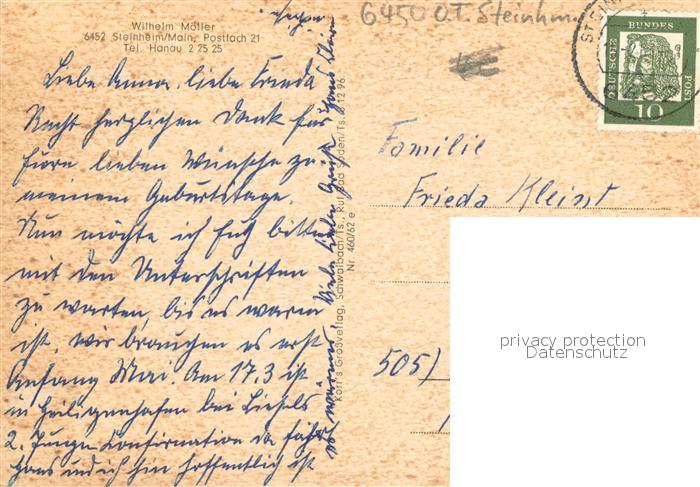 Wilhelm Möller
6452 Steinheim/Main, Postfach 21
Tel. Hanau 2 25 25
Liebe Anna, liebe Frieda
Recht herzlichen Dank für
Eure lieben Wünsche zu
meinem Geburtstage.
Nun möchte ich Euch bitten
mit den Unterschriften
zu warten, bis es warm
ist, wir brauchen es erst
Anfang Mai. Am 17.3 ist
in Heiligenhafen bei Liesels
2. Jungen Confirmation da fährt
Hans und ich hin hoffentlich ist
es wärmer. Viele liebe Grüße
Korr's Großverlag, Schwalbach/Ts., Ruf Bad Soden/Ts. 6 12 96
Nr. 460/62 e
6450 O.T. Steinheim
STEINH
DEUTSCHE
BUNDES
POST
10
Familie
Frieda Kleint
505)
privacy protection
Datenschutz